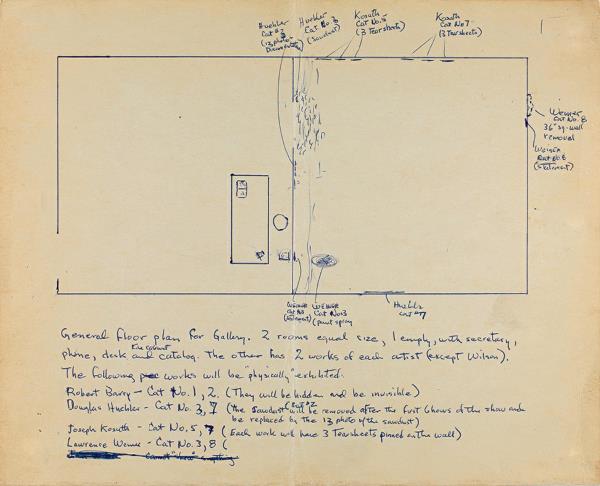 Huebler
Cat # 3
(13 photo-
Documentation)
Huebler
Cat No. 3
(Sawdust)
Kosuth
Cat No. 5
(3 Tearsheets)
Kosuth
Cat No 7
(3 Tearsheets)
1
Weiner
Cat No. 8
36" sq. wall
removal
Weiner
Cat No 8
(statement)
Weiner
Cat No 3
(statement)
Weiner
Cat No 3
(paint spray
Huebler
Cat #7
General floor plan for Gallery. 2 rooms equal size, 1 empty, with secretary,
phone, desk and catalog. The other has 2 works of each artist (except Wilson).
The following works will be "physically" exhibited.
Robert Barry - Cat No. 1, 2. (They will be hidden and be invisible)
Douglas Huebler - Cat No. 3, 7 (the sawdust will be removed after the first 6 hours of the show and
be replaced by the 13 photo of the sawdust)
Joseph Kosuth - Cat No. 5, 7 (Each work will have 3 Tearsheets pinned on the wall)
Lawrence Weiner - Cat No. 3, 8 (